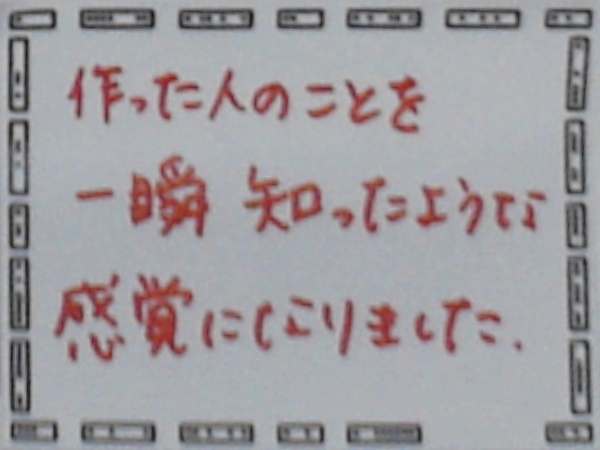 作った人のことを
一瞬 知ったような
感覚になりました.